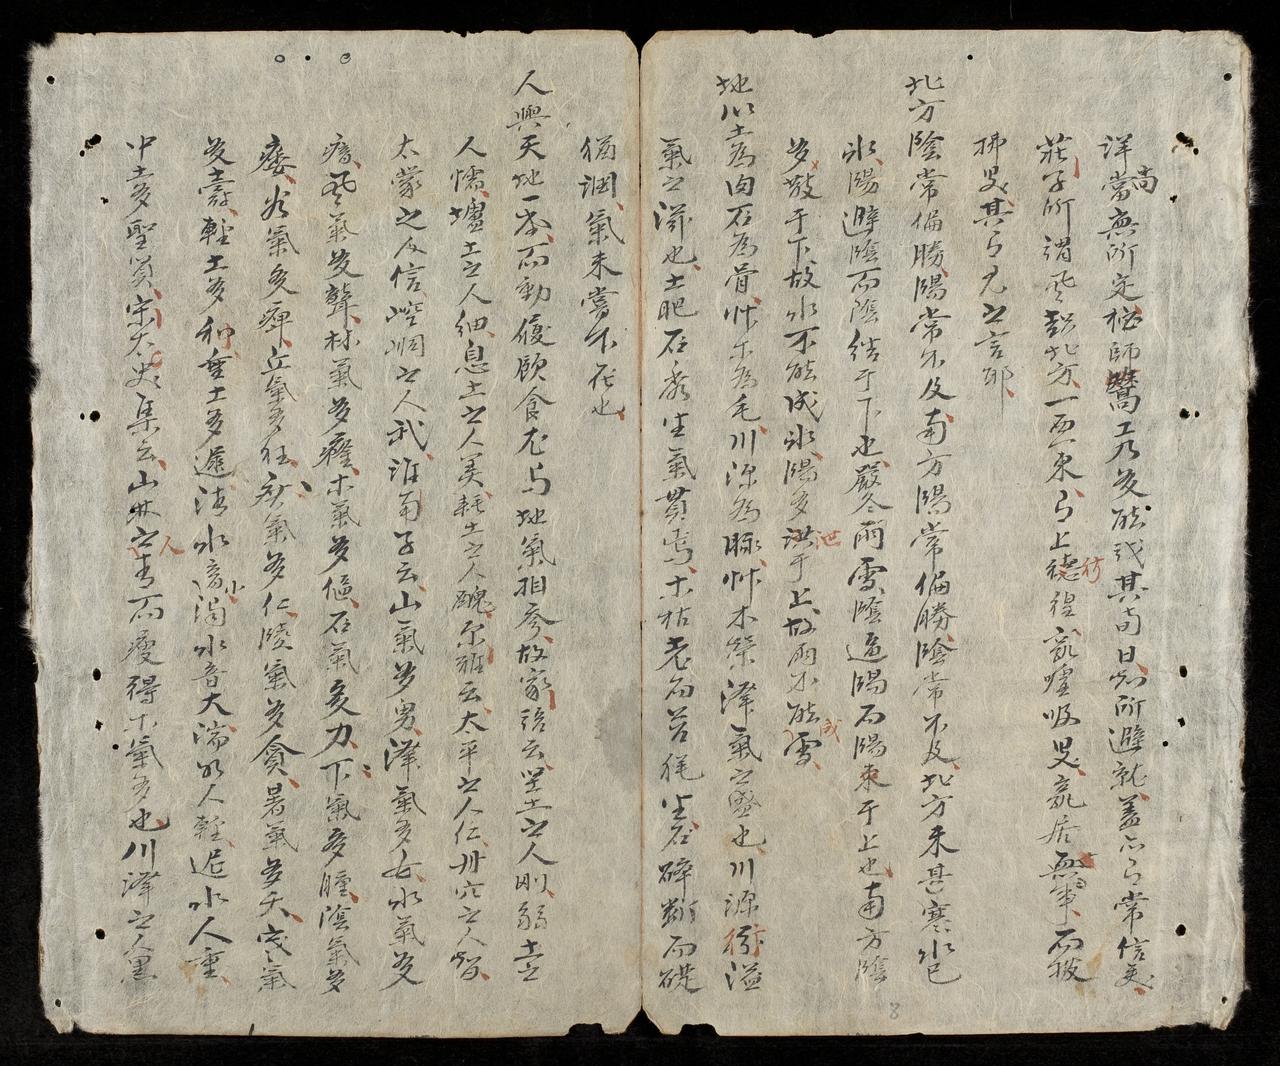 洋當無所定柂師篙工乃多能哉其向日知所避就蓋亦有常信矣
尚
莊子所謂風起北方一西一東有上彷徨孰噓吸是孰居無事而披
拂是其有尤之言耶
北方陰常偏勝陽常不及南方陽常偏勝陰常不及北方未甚寒水已
氷陽避陰而陰結于下也嚴冬雨雪陰逼陽而陽束于上也南方陰
多散于下故水不能成氷陽多泄于上故雨不能成雪
地以土為肉石為骨艸木為毛川源為脉艸木榮澤氣之盛也川源衍溢
氣之滋也土肥石秀生氣貫焉木枯老而苔毛生石碎斷而礎
猶潤氣未嘗不在也
人與天地一氣而動優顧食尤与地氣相參故家語云堅土之人剛弱土之
人懦壚土之人細息土之人美耗土之人醜尔雅云太平之人仁丹穴之人智
太蒙之人信崆峒之人武淮南子云山氣多男澤氣多女水氣多
瘖風氣多聾林氣多癃木氣多傴石氣多力下氣多腫陰氣多
瘻谷氣多痺丘氣多狂衍氣多仁陵氣多貪暑氣多夭寒氣
多壽輕土多利重土多遲清水音小濁水音大湍水人輕遲水人重
中土多聖賢宋太史集云山林之人青而瘦得木氣多也川澤之人黑
8